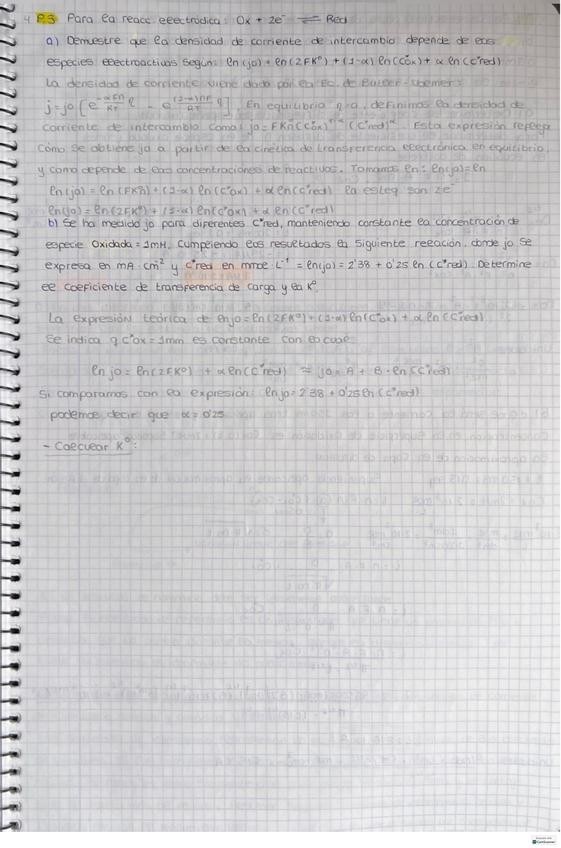 P.3 Para la reacc. electródica: Ox + 2e⁻ ⇌ Red
a) Demuestre que la densidad de corriente de intercambio depende de las
especies electroactivas según: ln(j₀) = ln(2FK°) + (1-α) ln(C*ox) + α ln(C*red)
La densidad de corriente viene dada por la Ec. de Butler-Volmer:
j = j₀ [e^(-αFn/RT η) - e^((1-α)nF/RT η)]. En equilibrio η=0, definimos la densidad de
corriente de intercambio como: j₀ = FK°n (C*ox)^(1-α) (C*red)^α Esta expresión refleja
cómo se obtiene j₀ a partir de la cinética de transferencia electrónica en equilibrio,
y como depende de las concentraciones de reactivos. Tomamos ln: ln(j₀) = ln
ln(j₀) = ln(FK°n) + (1-α) ln(C*ox) + α ln(C*red) la esteq son 2e⁻
ln(j₀) = ln(2FK°) + (1-α) ln(C*ox) + α ln(C*red)
b) Se ha medido j₀ para diferentes C*red, manteniendo constante la concentración de
especie Oxidada = 1mM, cumpliendo los resultados la siguiente relación, donde j₀ se
expresa en mA cm⁻² y C*red en mol L⁻¹ = ln(j₀) = 2'38 + 0'25 ln(C*red). Determine
el coeficiente de transferencia de carga y la K°.
La expresión teórica de lnj₀ = ln(2FK°) + (1-α) ln(C*ox) + α ln(C*red)
Se indica q C*ox = 1mM es constante con lo cual:
ln j₀ = ln(2FK°) + α ln(C*red) ≈ j₀ = A + B · ln(C*red)
Si comparamos con la expresión: lnj₀ = 2'38 + 0'25 ln(C*red)
podemos decir que α = 0'25
- Calcular K°:
CamScanner